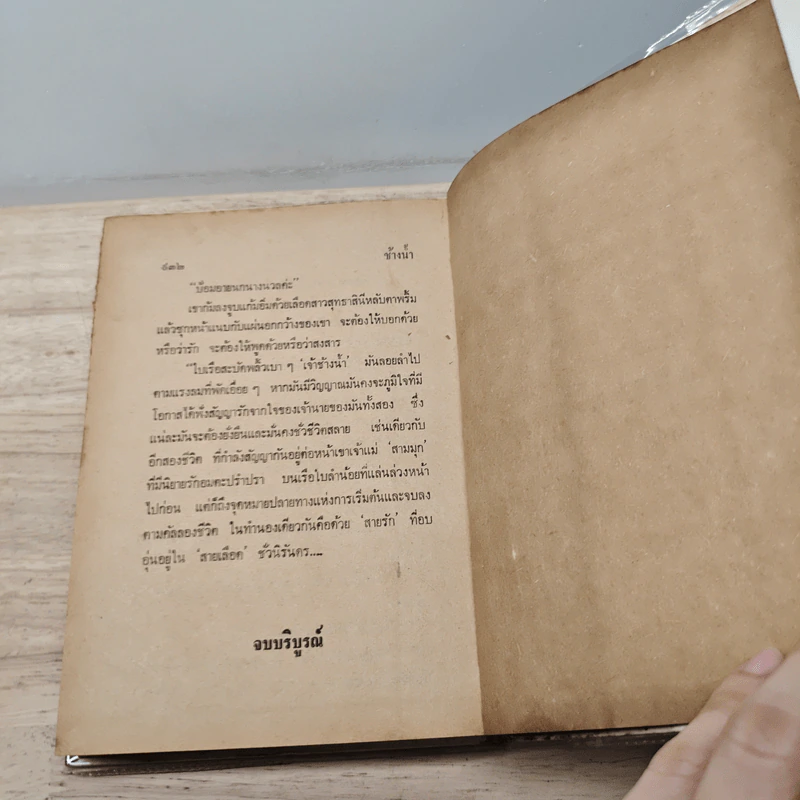 ๔๓๒ ช้างน้ำ
"ป้อมอายนกนางนวลค่ะ"
เขาก้มลงจูบแก้มอิ่มด้วยเลือดสาวสุทธาสินีหลับตาพริ้ม
แล้วซุกหน้าแนบกับแผ่นอกกว้างของเขา จะต้องให้บอกด้วย
หรือว่ารัก จะต้องให้พูดด้วยหรือว่าสงสาร
"ใบเรือสะบัดพลิ้วเบา ๆ 'เจ้าช้างน้ำ' มันลอยลำไป
ตามแรงลมที่พัดเอื่อย ๆ หากมันมีวิญญาณมันคงจะภูมิใจที่มี
โอกาสได้ฟังสัญญารักจากใจของเจ้านายของมันทั้งสอง ซึ่ง
แน่ละมันจะต้องยั่งยืนและมั่นคงชั่วชีวิตสลาย เช่นเดียวกับ
อีกสองชีวิต ที่กำลังสัญญากันอยู่ต่อหน้าเขาเจ้าแม่ 'สามมุก'
ที่มีนิยายรักอมตะปรำปรา บนเรือใบลำน้อยที่แล่นล่วงหน้า
ไปก่อน แต่ก็ถึงจุดหมายปลายทางแห่งการเริ่มต้นและจบลง
ตามคัลลองชีวิต ในทำนองเดียวกันคือด้วย 'สายรัก' ที่อบ
อุ่นอยู่ใน 'สายเลือด' ชั่วนิรันดร....
จบบริบูรณ์